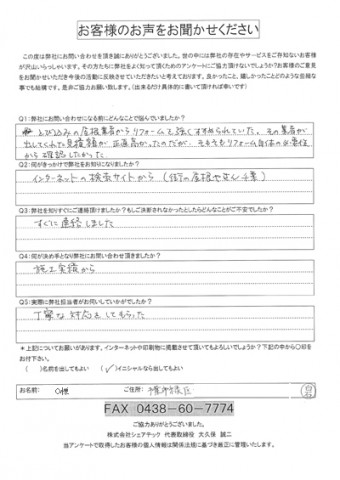 お客様のお声をお聞かせください
この度は弊社にお問い合わせを頂き誠にありがとうございました。世の中には弊社の存在やサービスをご存知ないお客様
が沢山いらっしゃいます。その方たちに弊社をよく知って頂くためのアンケートにご協力頂けないでしょうか?お客様のご意見
をお聞かせいただき今後の活動に反映させていただきたいと考えております。良かったこと、嬉しかったことどのような些細な
事でも結構です。是非ご協力お願い致します。(出来るだけ具体的に書いて頂ければ幸いです)
Q1:弊社にお問い合わせになる前にどんなことで悩んでいましたか?
とび込みの屋根業者からリフォームを強くすすめられていた。その業者が
出してくれた見積額が正直高かったのだが、そもそもリフォーム自体の必要性
から確認したかった。
Q2:何がきっかけで弊社をお知りになりましたか?
インターネットの検索サイトから(街の屋根やさん千葉)
Q3:弊社を知りすぐにご連絡頂けましたか?もしご決断されなかったとしたらどんなことがご不安でしたか?
すぐに連絡しました
Q4:何が決め手となり弊社にお問い合わせ頂きましたか?
施工実績から
Q5:実際に弊社担当者がお伺いしていかがでしたか?
丁寧な対応をしてもらった
*上記についてお願いがあります。インターネットや印刷物に掲載させて頂いてもよろしいでしょうか?下記の中から○印を
お付け下さい。
( )名前を出してもよい (✓)イニシャルなら出してもよい
お名前: 様 ご住所:
FAX 0438-60-7774
ご協力ありがとうございました。
株式会社シェアテック 代表取締役 大久保 誠二
当アンケートで取得したお客様の個人情報は関係法規に基づき厳正に管理いたします。